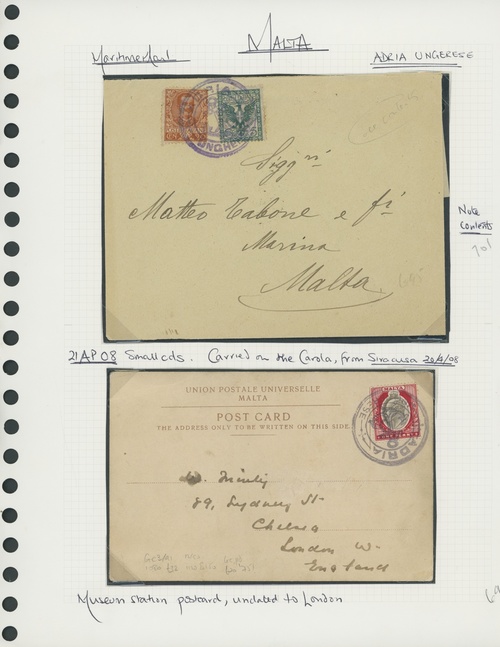 MALTA
Maritime Mail
ADRIA UNGERESE
ADRIA
UNGHE
Sigg ri
Matteo Tabone e fi
Marina
Malta.
Note
Contents
21 AP 08 Small cds. Carried on the Carola, from Siracusa 20/4/08
UNION POSTALE UNIVERSELLE
MALTA
POST CARD
THE ADDRESS ONLY TO BE WRITTEN ON THIS SIDE.
MALTA
ADRIA
89, Sydney St
Chelsea
London W.
England
Museum station postcard, undated to London